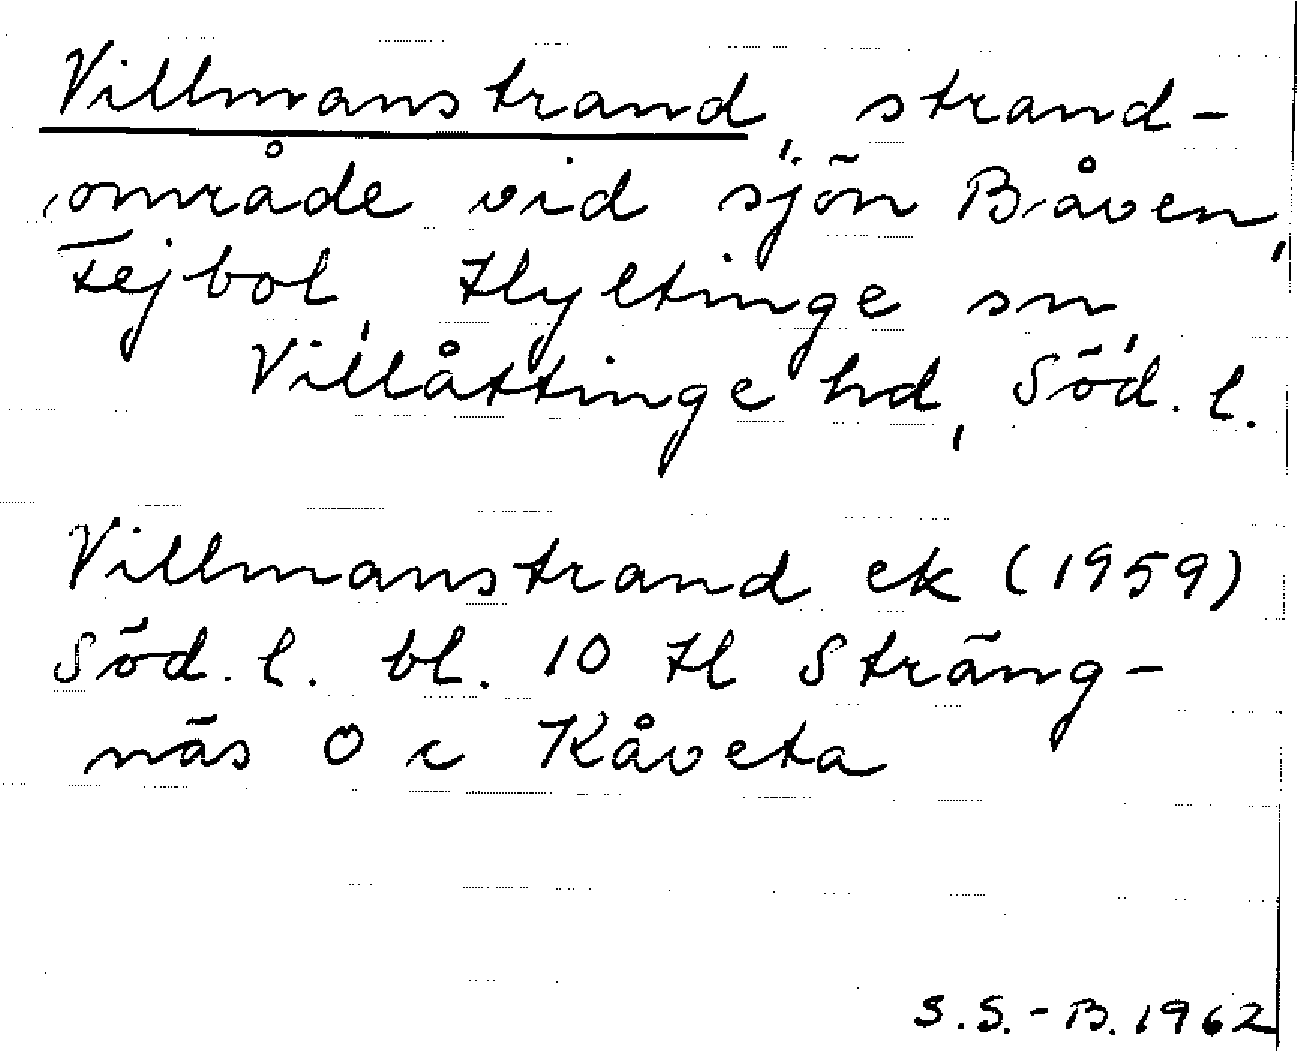 Villmanstrand, strand-
område vid sjön Båven,
Fejbol, Hyltinge sn,
Villåttinge hd, Söd. l.
Villmanstrand ek (1959)
Söd. l. bl. 10 H Sträng-
näs O c Kåveta
S.S.-B. 1962